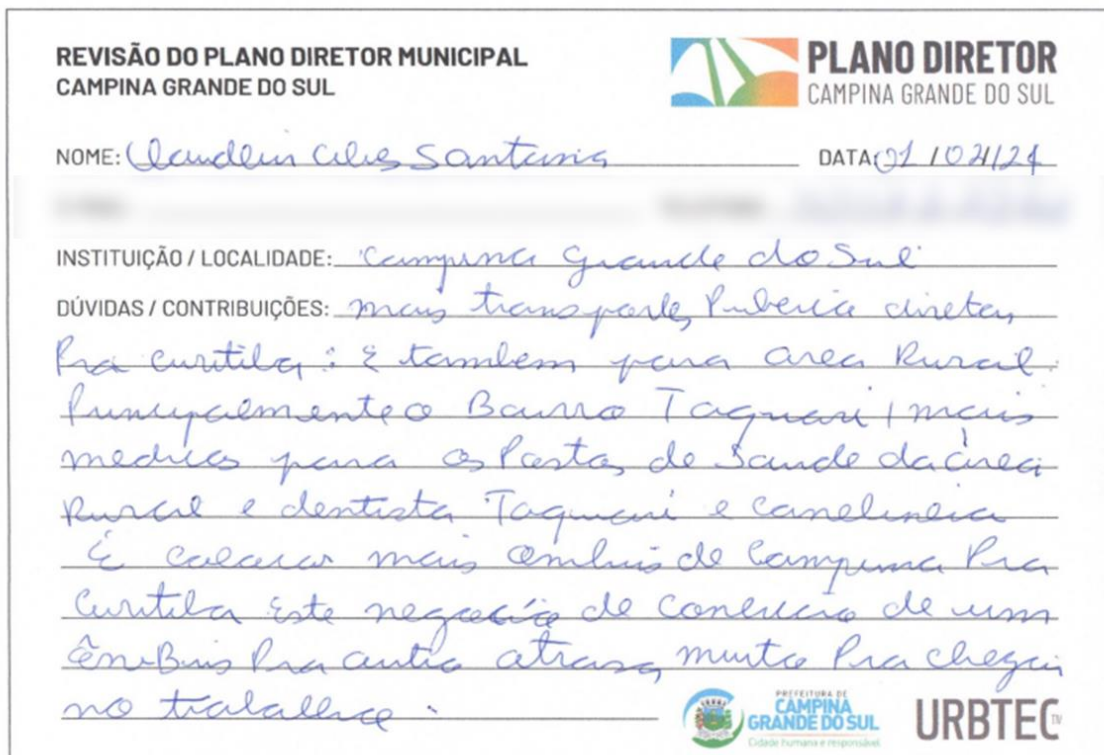 REVISÃO DO PLANO DIRETOR MUNICIPAL
CAMPINA GRANDE DO SUL
PLANO DIRETOR
CAMPINA GRANDE DO SUL
NOME: Santana DATA: 01/02/24
INSTITUIÇÃO / LOCALIDADE: Campina Grande do Sul
DÚVIDAS / CONTRIBUIÇÕES: mais transportes Publica diretas
Pra curitiba : E tambem para area Rural
Principalmente o Bairro Taquari, mais
medicos para os Postos de Saude da área
Rural e dentista Taquari e Canelinha
E colocar mais ombus de Campina Pra
Curitiba este negocio de conexão de um
ôniBus Pra outro atrasa muito Pra chegar
no trabalho.
PREFEITURA DE
CAMPINA
GRANDE DO SUL
Cidade humana e responsável
URBTEC TM